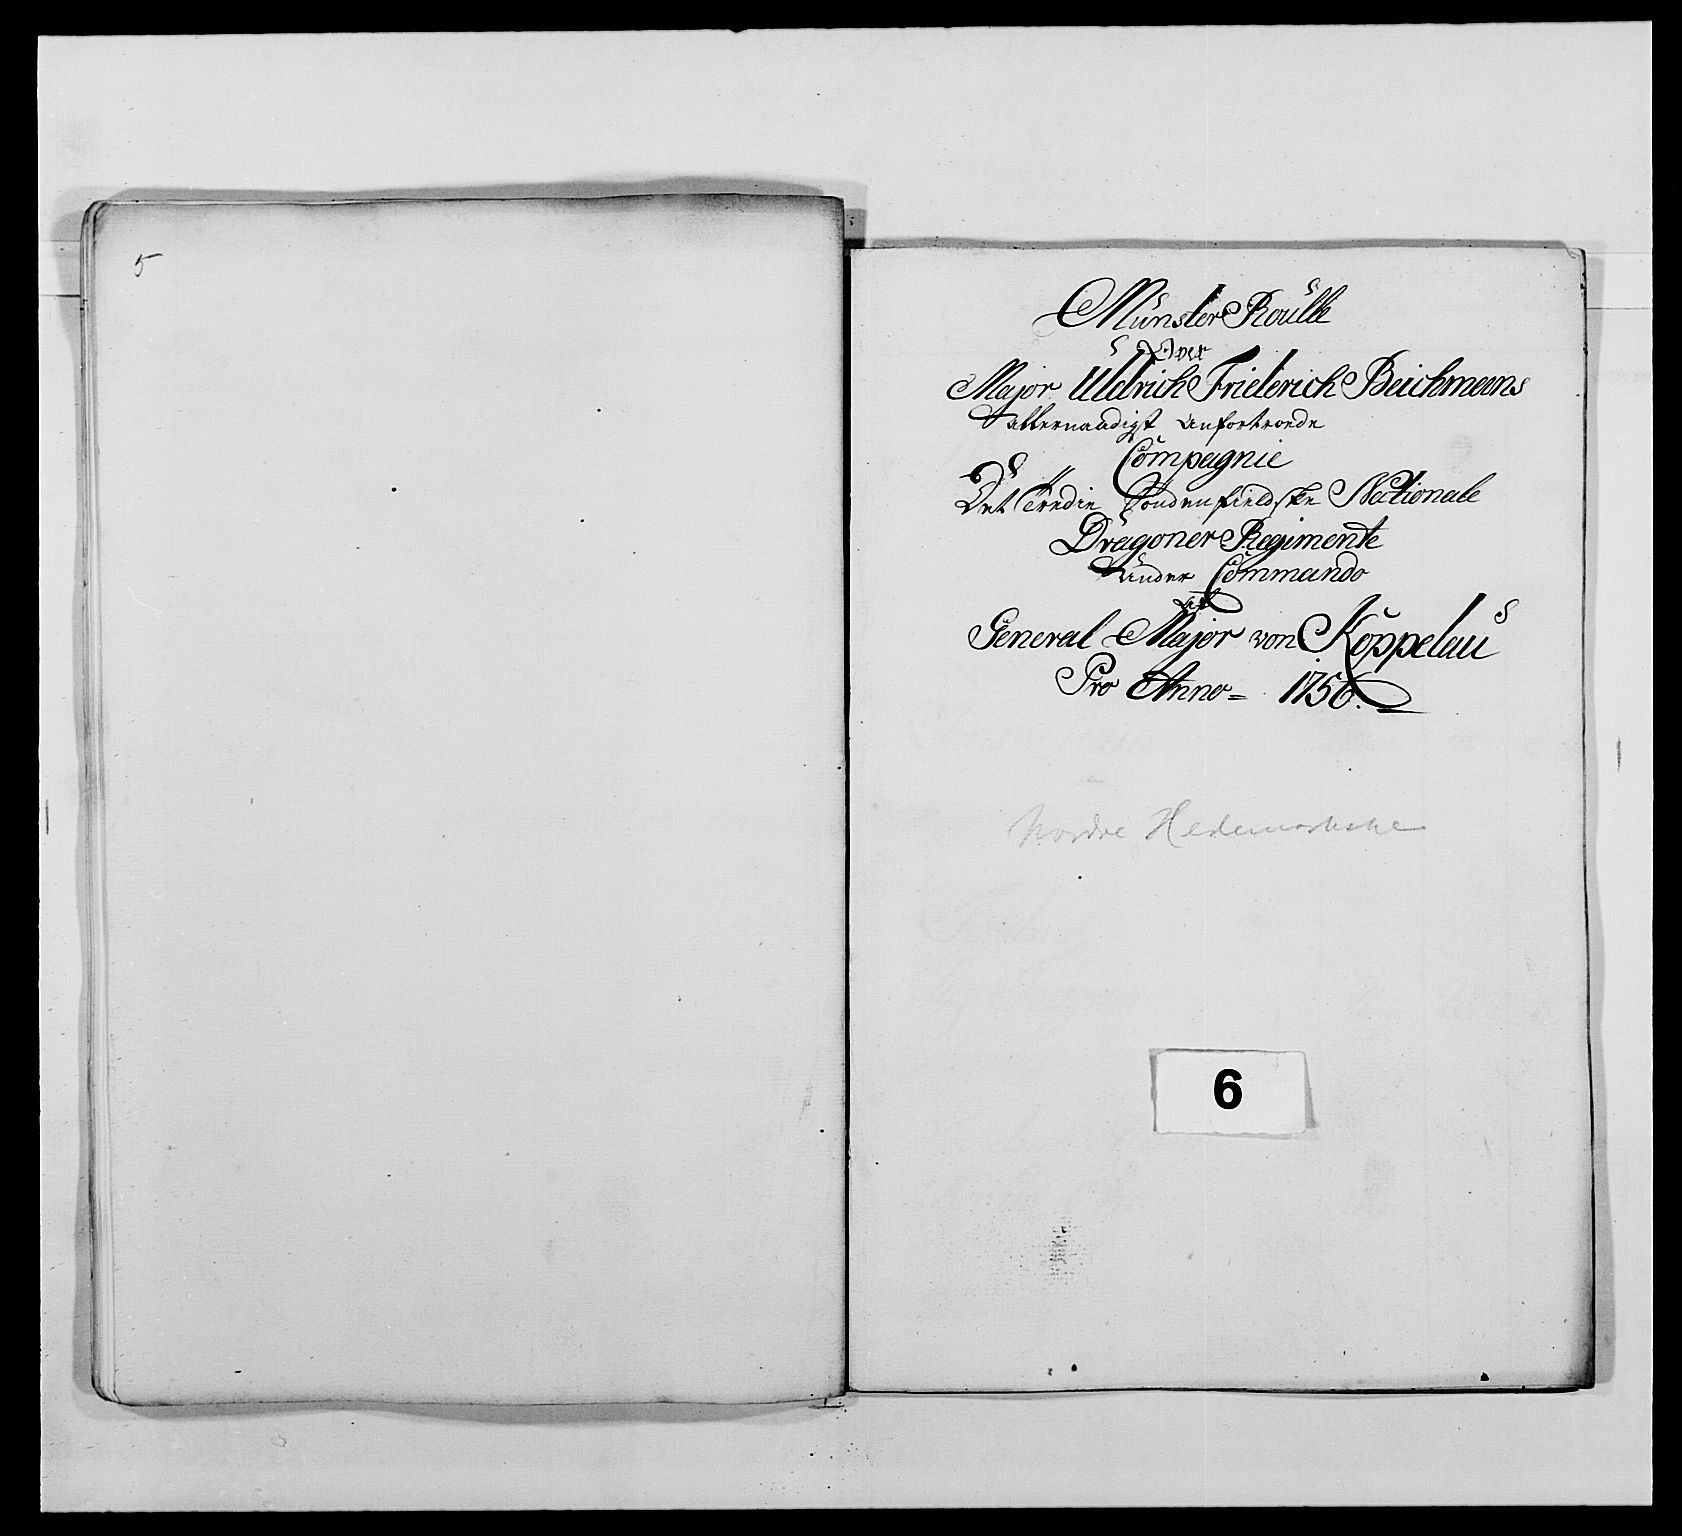 5
Münster Roülle
Over
Major Uldrich Friederich Beichmans
allernaadigst anfortroede
Compagnie
Det Tredie Sondenfieldske Nationale
Dragoner Regimente
Under Commando
af
General Major von Koppelau
Pro Anno = 1756.
Nordre Hedemarkske
6